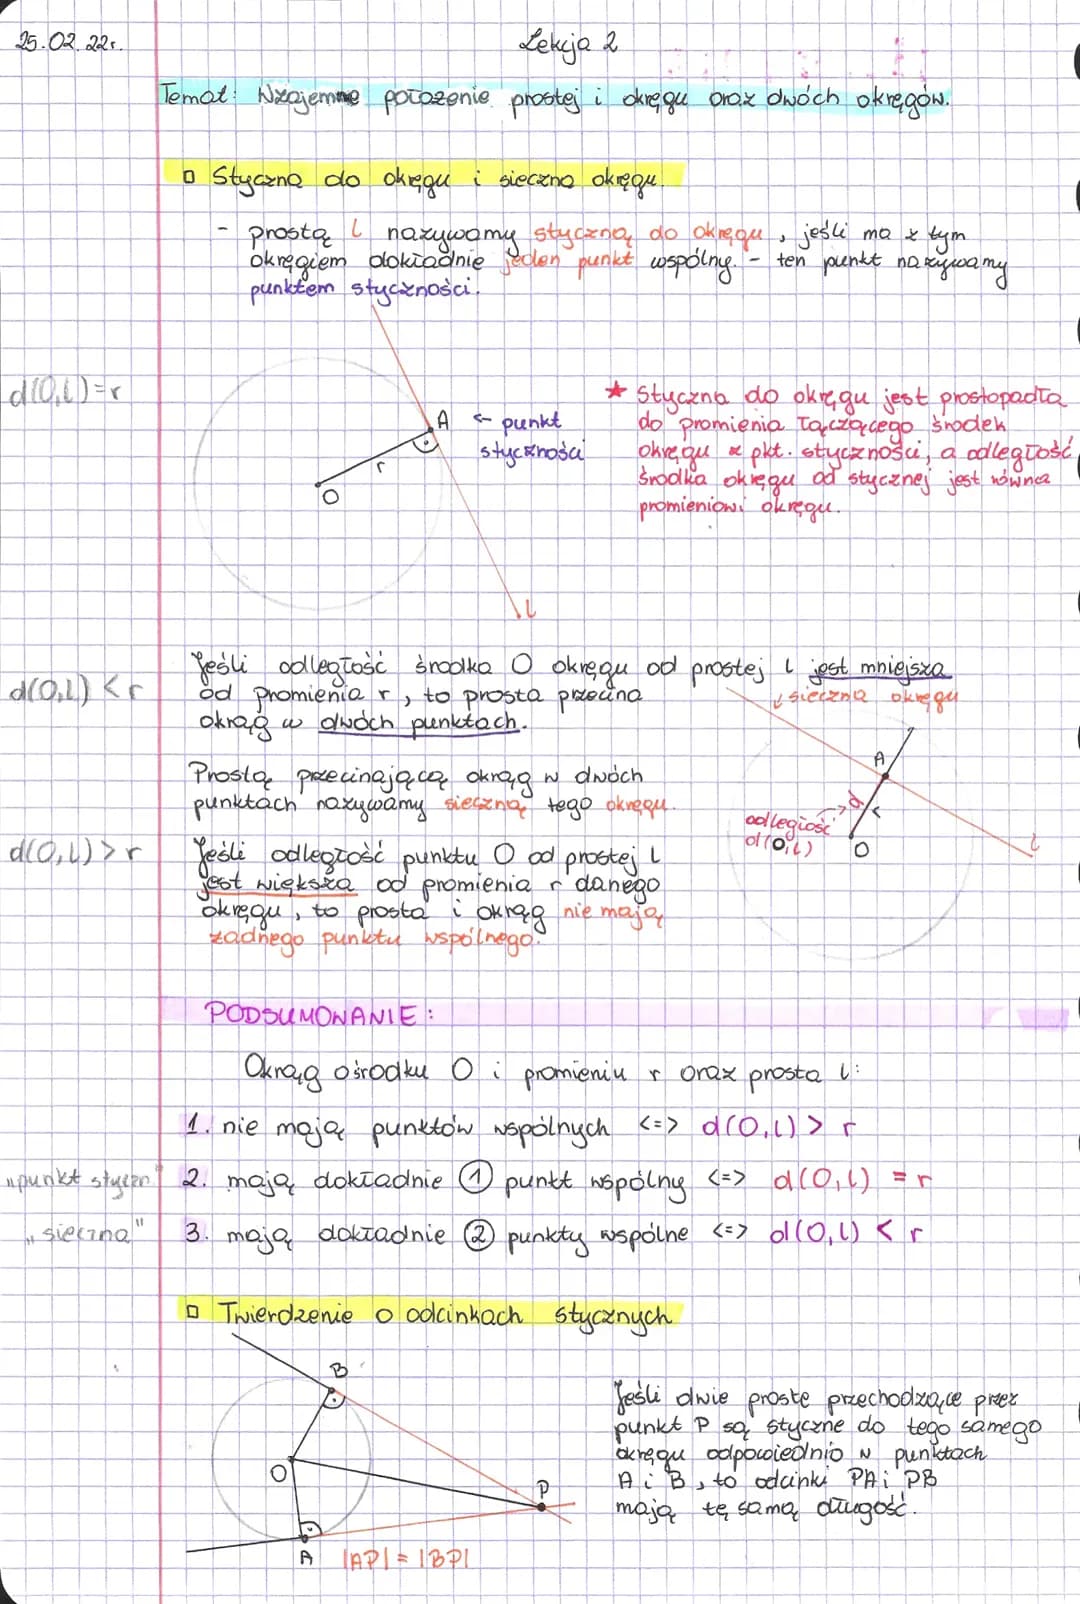 25.02.22r.
Lekcja 2
Temat: Wzajemne położenie prostej i okręgu oraz dwóch okręgów.
Styczna do okręgu i sieczna okręgu.
- prostą l nazywamy styczną do okręgu, jeśli ma z tym
okręgiem dokładnie jeden punkt wspólny. - ten punkt nazywamy
punktem styczności.
d(O,l)=r
A ← punkt
styczności
r
O
l
★ Styczna do okręgu jest prostopadła
do promienia łączącego środek
okręgu z pkt. styczności, a odległość
środka okręgu od stycznej jest równa
promieniowi okręgu.
d(O,l) < r
Jeśli odległość środka O okręgu od prostej l jest mniejsza
od promienia r, to prosta przecina
okrąg w dwóch punktach.
sieczna okręgu
Prostą przecinającą okrąg w dwóch
punktach nazywamy sieczną tego okręgu.
A
d
r
odległość
d(O,l)
O
l
d(O,l) > r
Jeśli odległość punktu O od prostej l
jest większa od promienia r danego
okręgu, to prosta i okrąg nie mają
żadnego punktu wspólnego.
PODSUMOWANIE:
Okrąg ośrodku O i promieniu r oraz prosta l:
1. nie mają punktów wspólnych <=> d(O,l) > r
"punkt styczn" 2. mają dokładnie 1 punkt wspólny <=> d(O,l) = r
"sieczna" 3. mają dokładnie 2 punkty wspólne <=> d(O,l) < r
Twierdzenie o odcinkach stycznych
B
O
P
A
|AP| = |BP|
Jeśli dwie proste przechodzące przez
punkt P są styczne do tego samego
okręgu odpowiednio w punktach
A i B, to odcinki PA i PB
mają tę samą długość.